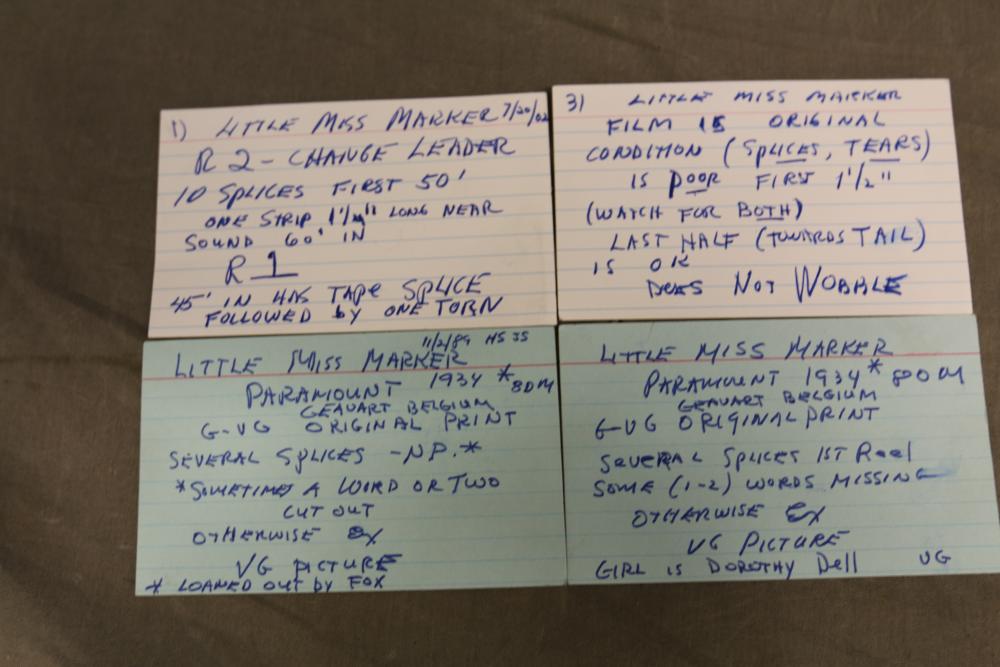 1) LITTLE MISS MARKER 7/20/02
R 2 - CHANGE LEADER
10 SPLICES FIRST 50'
ONE STRIP LONG NEAR
SOUND 60' IN
R 1
45' IN HAS TAPE SPLICE
FOLLOWED by ONE TORN
3) LITTLE MISS MARKER
FILM IS ORIGINAL
CONDITION (SPLICES, TEARS)
IS POOR FIRST 1 1/2"
(WATCH FOR BOTH)
LAST HALF (TOWARDS TAIL)
IS OK
DOES NOT WOBBLE
11/2/89 HS JS
LITTLE MISS MARKER
PARAMOUNT 1934 * 80M
GEAVART BELGIUM
G-VG ORIGINAL PRINT
SEVERAL SPLICES - N.P. *
*SOMETIMES A WORD OR TWO
CUT OUT
OTHERWISE EX
VG PICTURE
* LOANED OUT by FOX
LITTLE MISS MARKER
PARAMOUNT 1934 * 80M
GEAVART BELGIUM
G-VG ORIGINAL PRINT
SEVERAL SPLICES 1ST Reel
SOME (1-2) WORDS MISSING
OTHERWISE EX
VG PICTURE
GIRL IS DOROTHY Dell VG